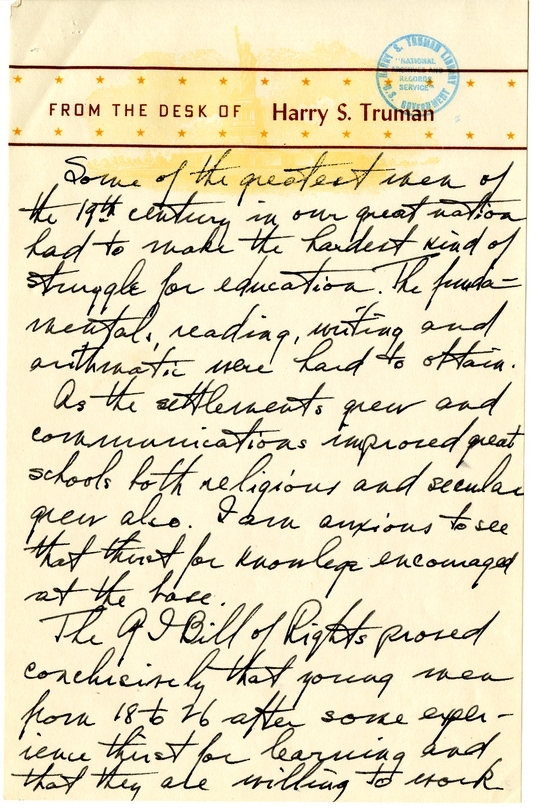 HARRY S. TRUMAN LIBRARY
"NATIONAL
ARCHIVES AND
RECORDS
SERVICE"
U.S. GOVERNMENT
FROM THE DESK OF Harry S. Truman
Some of the greatest men of
the 19th century in our great nation
had to make the hardest kind of
struggle for education. The funda=
mentals, reading, writing and
arithmatic were hard to obtain.
As the settlements grew and
communications improved great
schools both religious and secular
grew also. I am anxious to see
that thirst for knowlege encouraged
at the base.
The G I Bill of Rights proved
conclusively that young men
from 18 to 26 after some exper-
ience thirst for learning and
that they are willing to work